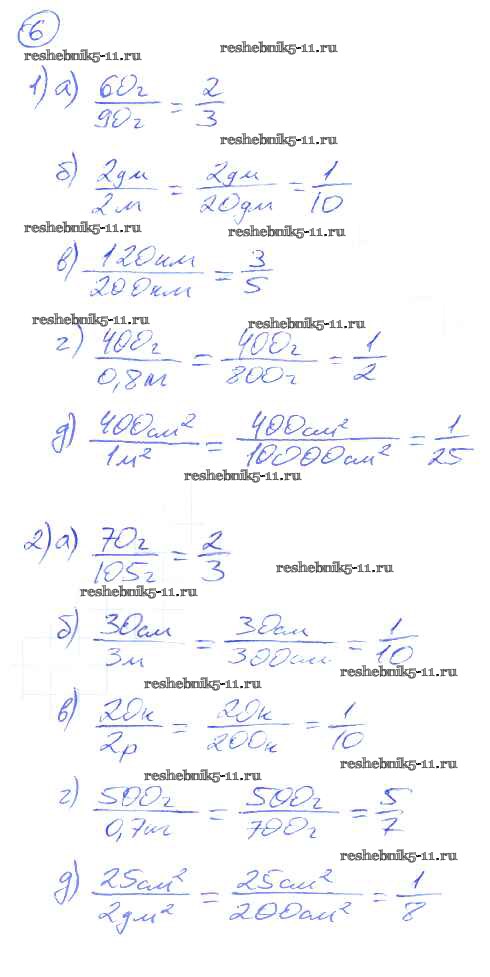 6
reshebnik5-11.ru
reshebnik5-11.ru
1) а) 60г/90г = 2/3
reshebnik5-11.ru
б) 2дм/2м = 2дм/20дм = 1/10
reshebnik5-11.ru
reshebnik5-11.ru
в) 120км/200км = 3/5
reshebnik5-11.ru
reshebnik5-11.ru
г) 400г/0,8кг = 400г/800г = 1/2
д) 400см²/1м² = 400см²/10000см² = 1/25
reshebnik5-11.ru
2) а) 70г/105г = 2/3
reshebnik5-11.ru
reshebnik5-11.ru
б) 30см/3м = 30см/300см = 1/10
reshebnik5-11.ru
reshebnik5-11.ru
в) 20к/2р = 20к/200к = 1/10
reshebnik5-11.ru
reshebnik5-11.ru
г) 500г/0,7кг = 500г/700г = 5/7
reshebnik5-11.ru
д) 25см²/2дм² = 25см²/200см² = 1/8